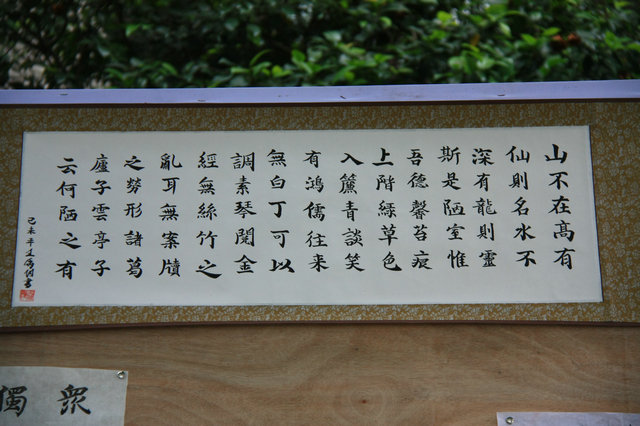 山不在髙有
仙則名水不
深有龍則靈
斯是陋室惟
吾德馨苔痕
上階綠草色
入簾青談笑
有鴻儒往来
無白丁可以
調素琴閱金
經無絲竹之
亂耳無案牘
之勞形諸葛
廬子雲亭子
云何陋之有
己未年
書
衆
獨